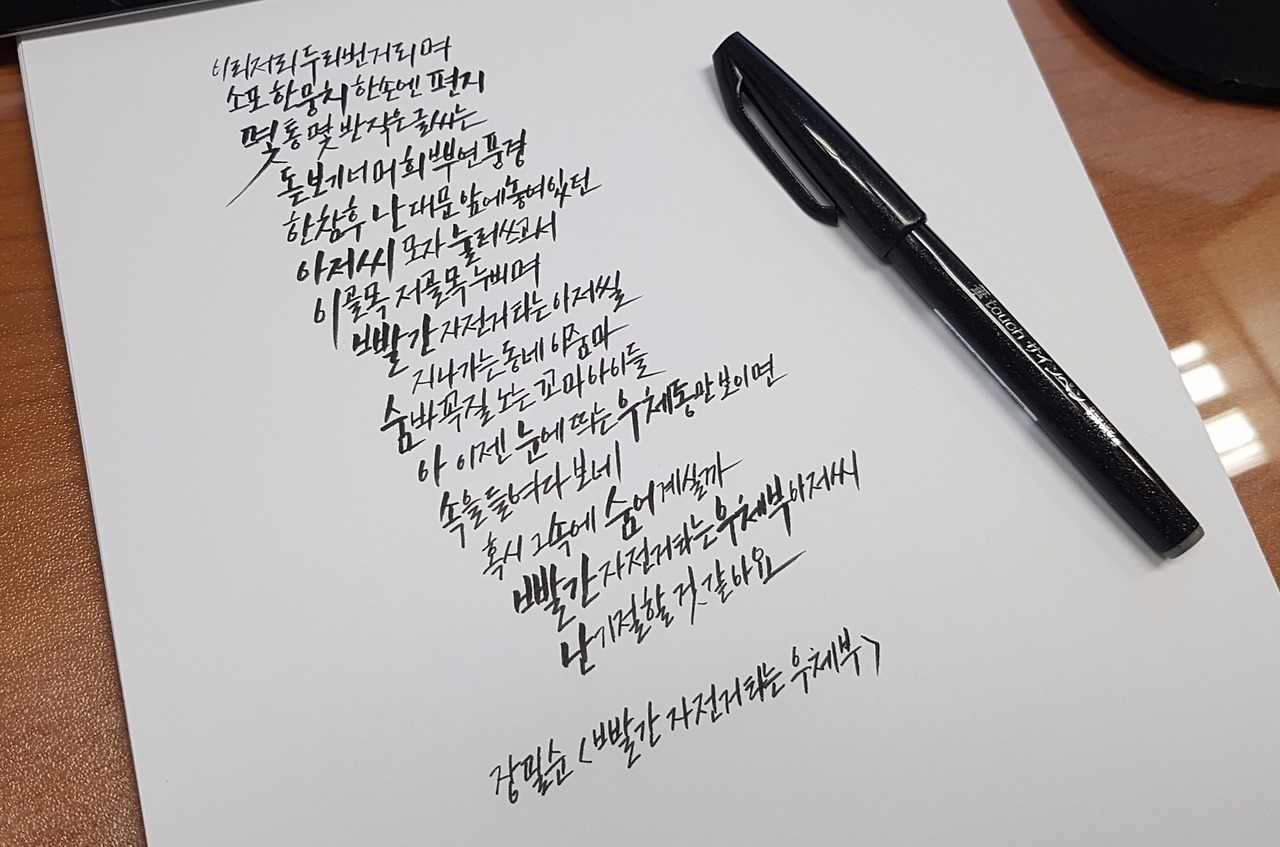 이리저리 두리번거리며
소포 한뭉치 한손엔 편지
몇통 몇 반 작은 글씨는
돋보기 너머 희뿌연 풍경
한참후 난 대문 앞에 놓여있던
아저씨 모자 눌러쓰고서
이골목 저골목 누비며
빨간 자전거 타는 아저씰
지나가는 동네 아줌마
숨바꼭질 노는 꼬마 아이들
아 이젠 눈에 띄는 우체통만 보이면
속을 들여다 보네
혹시 그속에 숨어 계실까
빨간 자전거 타는 우체부 아저씨
난 기절할 것 같아요
장필순 <빨간 자전거 타는 우체부>
touch サインペン